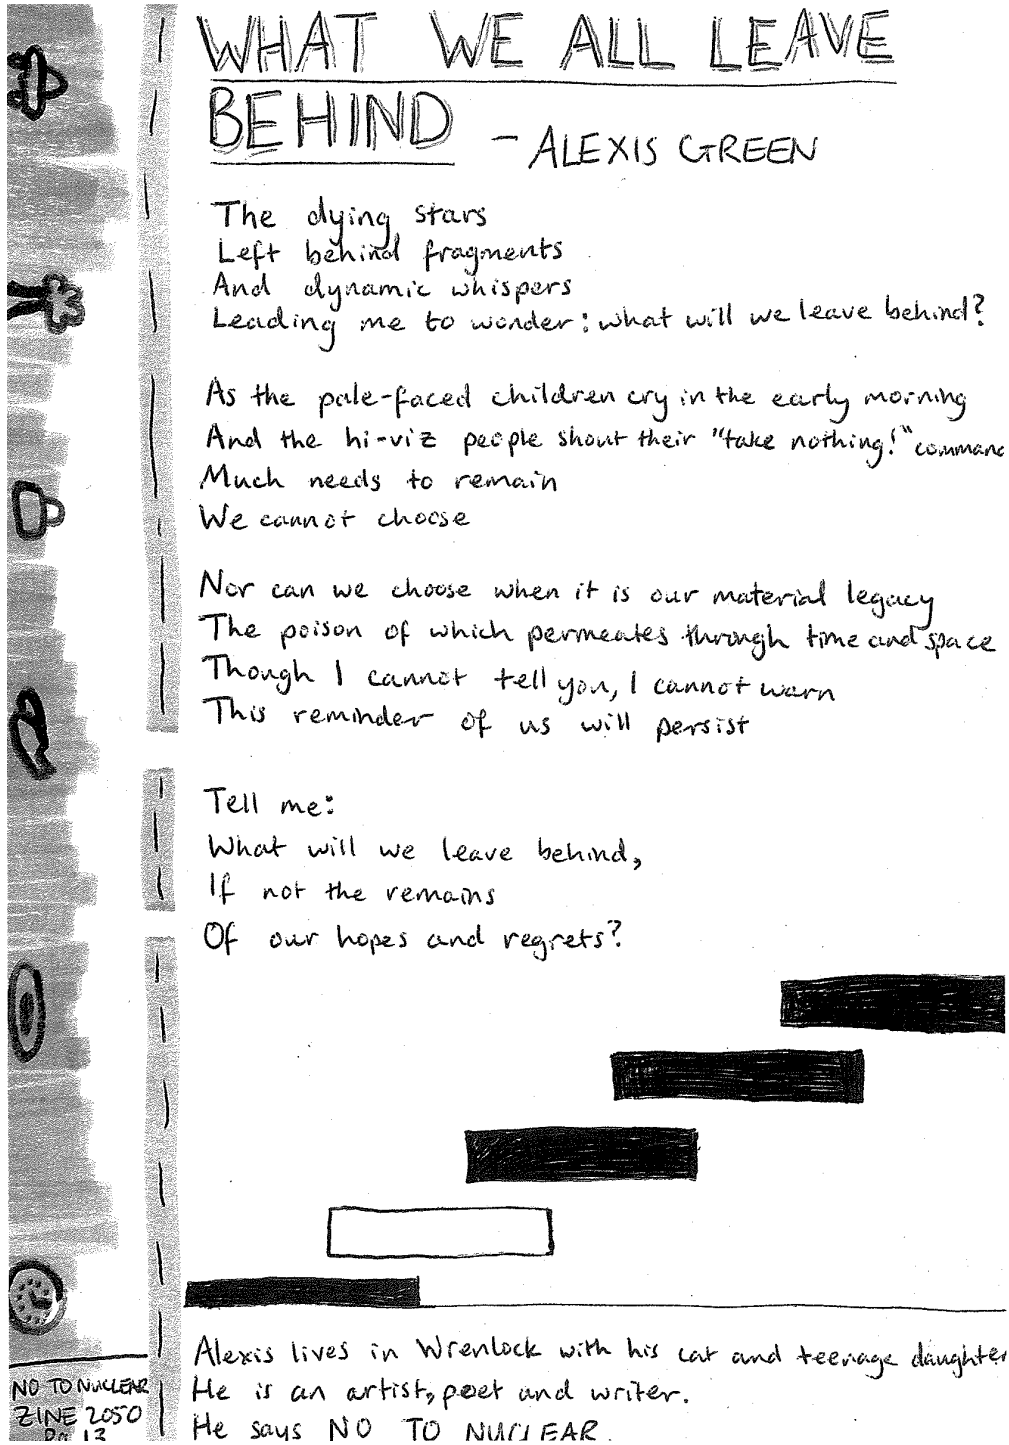 WHAT WE ALL LEAVE
BEHIND - ALEXIS GREEN
The dying stars
Left behind fragments
And dynamic whispers
Leading me to wonder: what will we leave behind?
As the pale-faced children cry in the early morning
And the hi-viz people shout their "take nothing!" command
Much needs to remain
We cannot choose
Nor can we choose when it is our material legacy
The poison of which permeates through time and space
Though I cannot tell you, I cannot warn
This reminder of us will persist
Tell me:
What will we leave behind,
If not the remains
Of our hopes and regrets?
Alexis lives in Wrenlock with his cat and teenage daughter
He is an artist, poet and writer.
He says NO TO NUCLEAR.
NO TO NUCLEAR
ZINE 2050
Pg 13